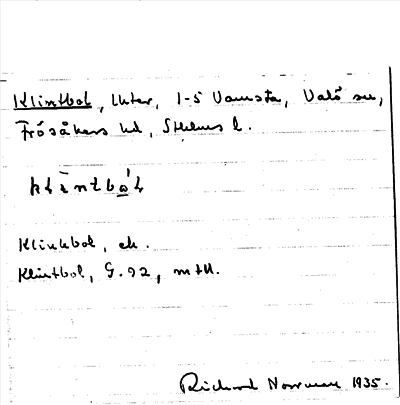 Klintbol, Uter, 1-5 Vamsta, Valö sn,
Frösåkers hd, Sthlms l.
klìntbɷ́l
Klinkbol, ek.
Klintbol, G. 92, mtll.
Richard Norrman 1935.